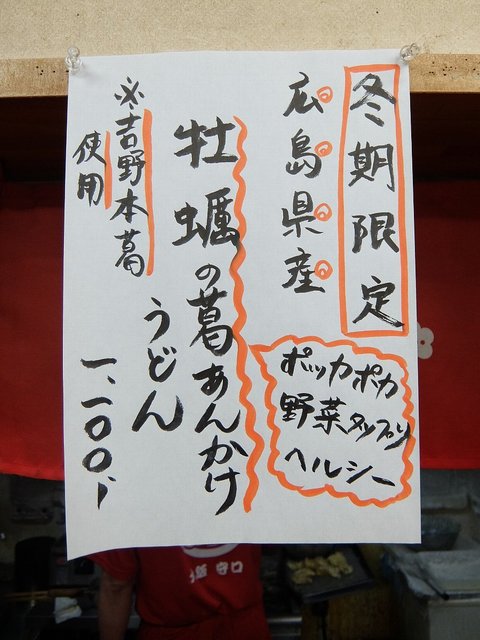 冬期限定
広島県産
牡蠣の葛あんかけ
うどん
一、一〇〇、
※吉野本葛
使用
ポッカポカ
野菜タップリ
ヘルシー